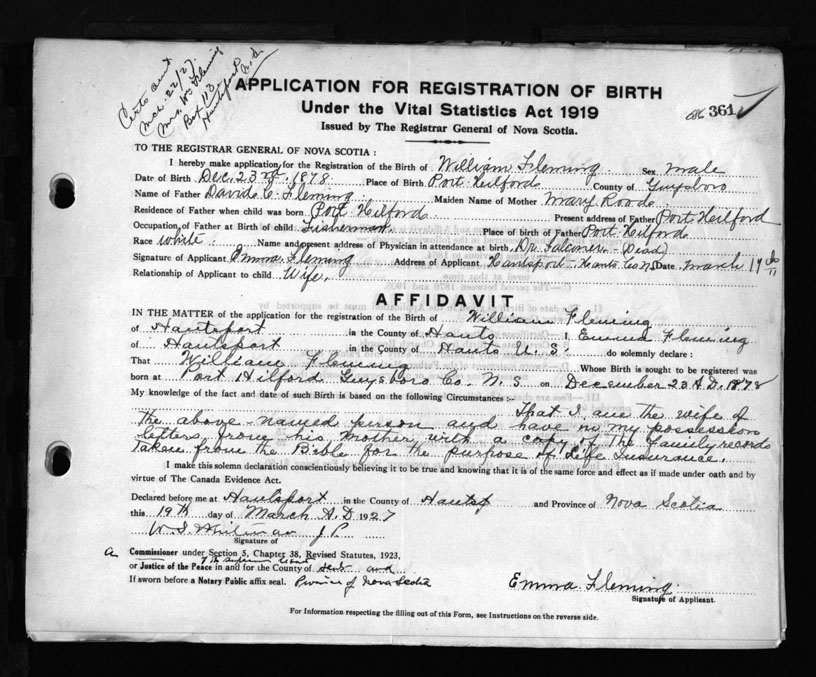 Certs
Mch. 22/27
Mrs. Wm Fleming
Box 113
Hantsport N.S.
APPLICATION FOR REGISTRATION OF BIRTH
Under the Vital Statistics Act 1919
Issued by The Registrar General of Nova Scotia.
361
TO THE REGISTRAR GENERAL OF NOVA SCOTIA :
I hereby make application for the Registration of the Birth of William Fleming Sex male
Date of Birth Dec. 23rd 1878 Place of Birth Port Hilford County of Guysboro
Name of Father David C. Fleming Maiden Name of Mother Mary Rood
Residence of Father when child was born Port Hilford Present address of Father Port Hilford
Occupation of Father at Birth of child Fisherman Place of birth of Father Port Hilford
Race White. Name and present address of Physician in attendance at birth Dr. Falconer - (Dead)
Signature of Applicant Emma Fleming Address of Applicant Hantsport Hants Co NS Date March 19
Relationship of Applicant to child Wife,
AFFIDAVIT
IN THE MATTER of the application for the registration of the Birth of William Fleming
of Hantsport in the County of Hants I, Emma Fleming
of Hantsport in the County of Hants N.S. do solemnly declare :
That William Fleming Whose Birth is sought to be registered was
born at Port Hilford Guysboro Co. N. S. on December 23 A.D. 1878
My knowledge of the fact and date of such Birth is based on the following Circumstances :-
That I am the wife of
the above-named person and have in my possession
letters from his mother with a copy of the family records
taken from the Bible for the purpose of Life Insurance.
I make this solemn declaration conscientiously believing it to be true and knowing that it is of the same force and effect as if made under oath and by
virtue of The Canada Evidence Act.
Declared before me at Hantsport in the County of Hants and Province of Nova Scotia
this 19th day of March A.D 1927
W. S. Whitman J. P.
Signature of
a Commissioner under Section 5, Chapter 38, Revised Statutes, 1923,
of the Supreme Court
or Justice of the Peace in and for the County of Hants and
If sworn before a Notary Public affix seal. Province of Nova Scotia
Emma Fleming
Signature of Applicant.
For Information respecting the filling out of this Form, see Instructions on the reverse side.